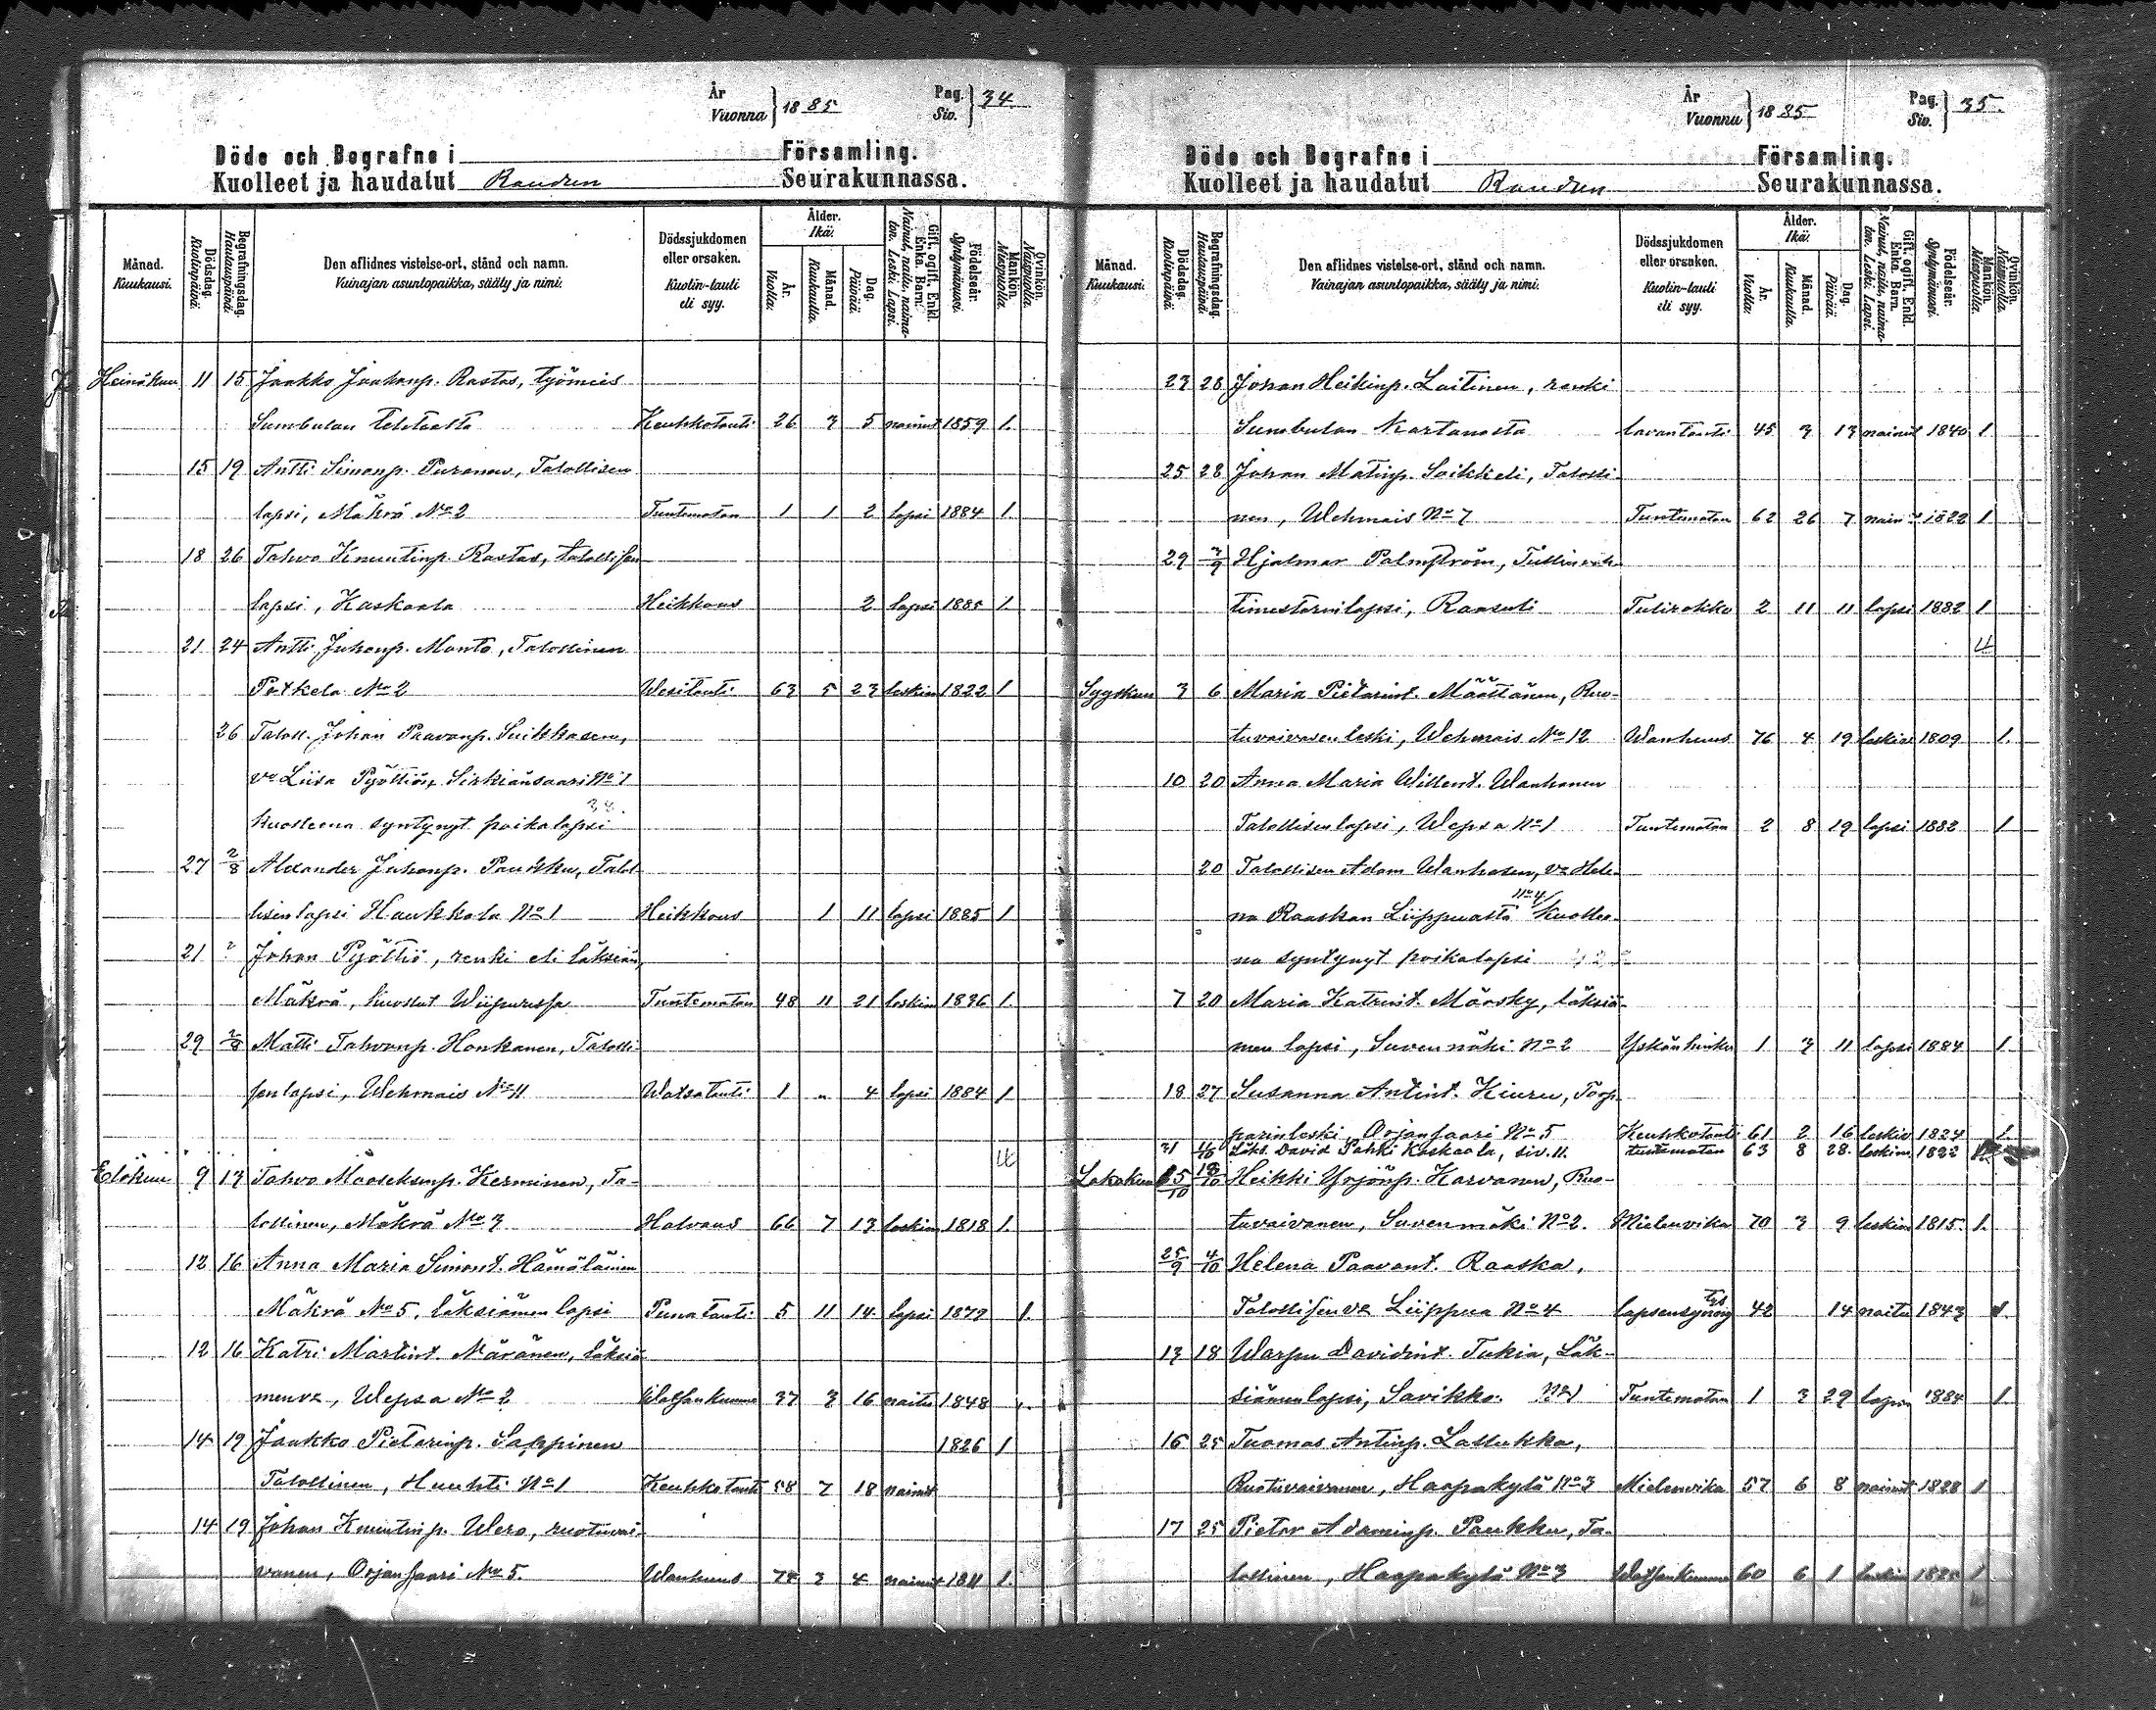 År
Vuonna } 1885
Pag.
Siv. } 34
Döde och Begrafne i Församling.
Kuolleet ja haudatut Raudun Seurakunnassa.
Månad. Kuukausi.
Dödsdag. Kuolinpäivä.
Begrafningsdag. Hautauspäivä.
Den aflidnes vistelse-ort, stånd och namn.
Vainajan asuntopaikka, sääty ja nimi.
Dödssjukdomen eller orsaken.
Kuolin-tauti eli syy.
Ålder. Ikä:
År. Vuotta:
Månad. Kuukautta.
Dag. Päivää.
Gift, ogift, Enkl. Enka. Barn.
Nainut, naitu, naimaton. Leski. Lapsi.
Födelseår. Syntymävuosi.
Mankön. Miespuolia.
Qvinkön. Naispuolia.
Heinäkuu 11 15 Jaakko Jaakonp. Rastas, työmies
Sumbulan tehtaalta Keuhkotauti 26 3 5 nainut 1859 1.
15 19 Antti Simonp. Puronen, Talollisen
lapsi, Mäkrä No 2 Tuntematon 1 1 2 lapsi 1884 1
18 26 Tahvo Knuutinp. Rastas, talollisen
lapsi, Kaskaala Heikkous 2 lapsi 1885 1
21 24 Antti Juhonp. Manto, Talollinen
Potkela No 2 Wesitauti 63 5 23 leskim 1822 1
26 Taloll. Johan Paavonp. Suikkasen,
vo Liisa Pyöttiön, Sirkiänsaari No 1
kuolleena syntynyt poikalapsi
27 2/8 Alexander Juhonp. Paukku, Talol
lisen lapsi Haukkala No 1 Heikkous 1 11 lapsi 1885 1
21 ? Johan Pyöttiö, renki eli läksiän,
Mäkrä, kuollut Wiipurissa Tuntematon 48 11 21 leskim 1836 1.
29 2/8 Matti Tahvonp. Honkanen, Talolli-
sen lapsi, Wehmais No 11 Watsatauti 1 „ 4 lapsi 1884 1
Elokuu 9 13 Tahvo Mooseksenp. Kerminen, Ta-
lollinen, Mäkrä No 3 Halvaus 66 7 13 leskim 1818 1.
12 16 Anna Maria Simont. Hämäläinen
Mäkrä No 5, läksiämen lapsi Punatauti 5 11 14 lapsi 1879 1.
12 16 Katri Martint. Näränen, läksiä
men vo, Wepsa No 2 Watsankumma 37 3 16 naitu 1848
14 19 Jaakko Pietarinp. Sappinen 1826 1
Talollinen, Huuhti No 1 Keuhkotauti 58 7 18 nainut
14 19 Johan Knuutinp. Wero, ruotuvai-
vanen, Orjansaari No 5. Wanhuus 74 3 4 nainut 1811 1.
År
Vuonna } 1885
Pag.
Siv. } 35.
Döde och Begrafne i Församling.
Kuolleet ja haudatut Raudun Seurakunnassa.
Månad. Kuukausi.
Dödsdag. Kuolinpäivä.
Begrafningsdag. Hautauspäivä.
Den aflidnes vistelse-ort, stånd och namn.
Vainajan asuntopaikka, sääty ja nimi.
Dödssjukdomen eller orsaken.
Kuolin-tauti eli syy.
Ålder. Ikä:
År. Vuotta:
Månad. Kuukautta.
Dag. Päivää.
Gift, ogift, Enkl. Enka. Barn.
Nainut, naitu, naimaton. Leski. Lapsi.
Födelseår. Syntymävuosi.
Mankön. Miespuolia.
Qvinkön. Naispuolia.
23 28 Johan Heikinp. Laitinen, renki
Sumbulan Kartanosta lavantauti 45 3 13 nainut 1840 1
25 28 Johan Matinp. Soikkeli, Talolli-
nen, Wehmais No 7 Tuntematon 62 26 7 1822 1
29 3/9 Hjalmar Palmström, Tullin
lapsi, Raasuli Tulirokko 2 11 11 lapsi 1882 1
4
Syyskuu 3 6 Maria Pietarint. Määttänen, Ruo-
tuvaivasen leski, Wehmais No 12 Wanhuus 76 4 19 leskiv 1809 1.
10 20 Anna Maria Willent. Wanhanen
Talollisen lapsi, Wepsa No 1 Tuntematon 2 8 19 lapsi 1882 1
20 Talollisen Adam Wanhasen, vo Hele-
na Raaskan Liippualta No 4 kuollee-
na syntynyt poikalapsi
7 20 Maria Katrint. Mörsky, läksiä-
men lapsi, Suvenmäki No 2 Yskänhinku 1 3 11 lapsi 1884 1.
18 27 Susanna Antint. Kiuru, Torp
parin leski, Orjansaari No 5 Keuhkotauti 61 2 16 leskiv 1824 1.
31 Läks. David Pahki Kaskaala, siv. 11. tuntematon 63 8 28. leskim. 1822
Lokakuu 15/10 18/10 Heikki Yrjönp. Karvanen, Ruo-
tuvaivanen, Suvenmäki No 2. Mielenvika 70 3 9 leskim 1815. 1.
25/9 4/10 Helena Paavont. Raaska,
Talollisen vo Liippua No 4 lapsensynnytys 42 14 naitu 1843 1.
13 18 Warpu Davidint. Tukia, Läk-
siämen lapsi, Savikko. No 1 Tuntematon 1 3 29 lapsi 1884 1.
16 25 Tuomas Antinp. Lallukka,
Ruotuvaivanen, Haapakylä No 3 Mielenvika 57 6 8 nainut 1828 1
17 25 Pietar Adaminp. Paukku, Ta-
lollinen, Haapakylä No 3 Watsankumma 60 6 1 leskim 1825 1